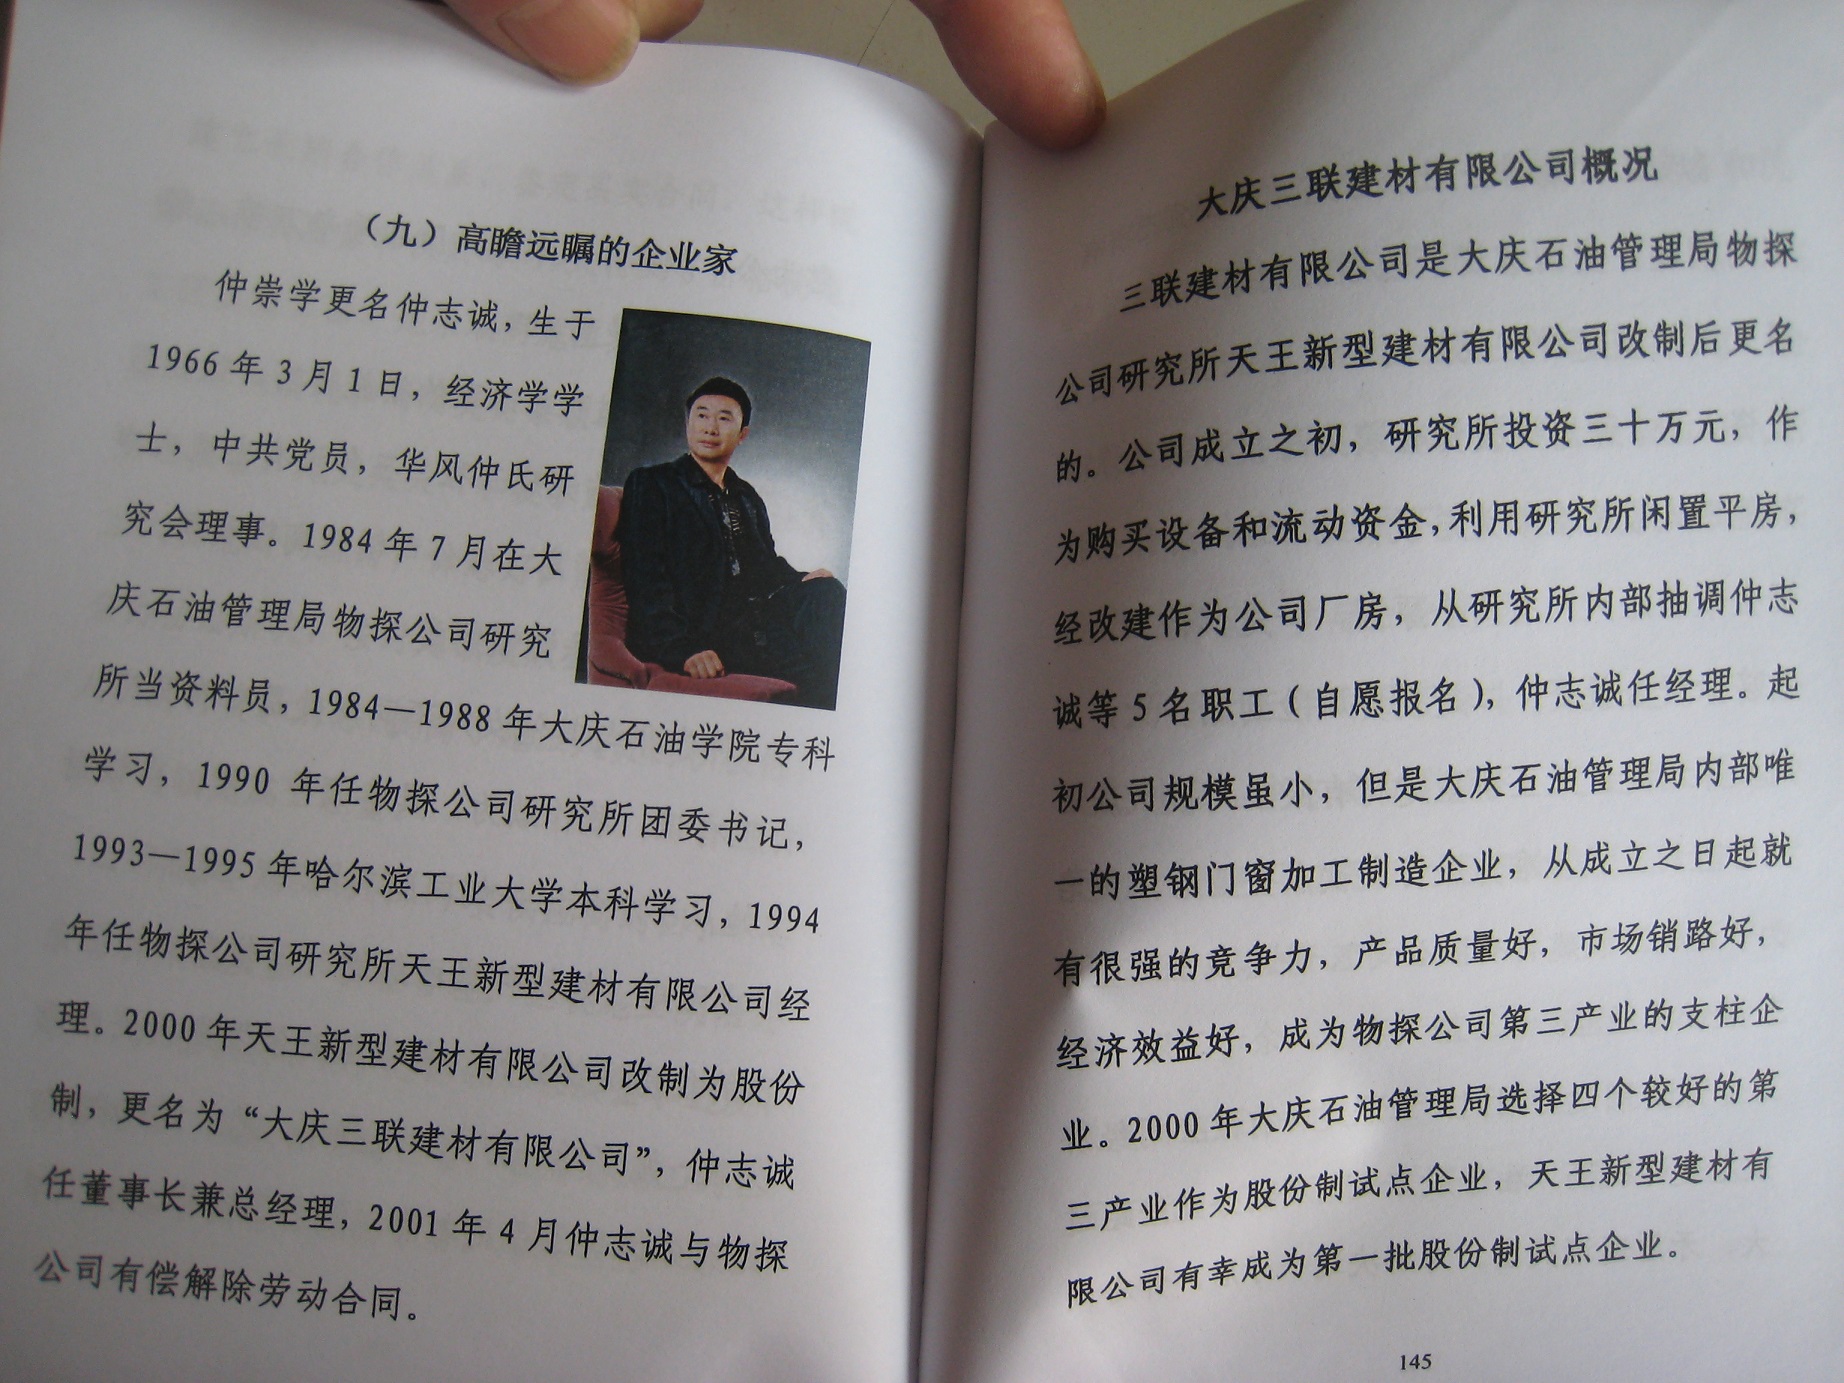 （九）高瞻远瞩的企业家
仲崇学更名仲志诚，生于
1966 年 3 月 1 日，经济学学
士，中共党员，华风仲氏研
究会理事。1984 年 7 月在大
庆石油管理局物探公司研究
所当资料员，1984—1988 年大庆石油学院专科
学习，1990 年任物探公司研究所团委书记，
1993—1995 年哈尔滨工业大学本科学习，1994
年任物探公司研究所天王新型建材有限公司经
理。2000 年天王新型建材有限公司改制为股份
制，更名为“大庆三联建材有限公司”，仲志诚
任董事长兼总经理，2001 年 4 月仲志诚与物探
公司有偿解除劳动合同。
大庆三联建材有限公司概况
三联建材有限公司是大庆石油管理局物探
公司研究所天王新型建材有限公司改制后更名
的。公司成立之初，研究所投资三十万元，作
为购买设备和流动资金，利用研究所闲置平房，
经改建作为公司厂房，从研究所内部抽调仲志
诚等 5 名职工（自愿报名），仲志诚任经理。起
初公司规模虽小，但是大庆石油管理局内部唯
一的塑钢门窗加工制造企业，从成立之日起就
有很强的竞争力，产品质量好，市场销路好，
经济效益好，成为物探公司第三产业的支柱企
业。2000 年大庆石油管理局选择四个较好的第
三产业作为股份制试点企业，天王新型建材有
限公司有幸成为第一批股份制试点企业。
145